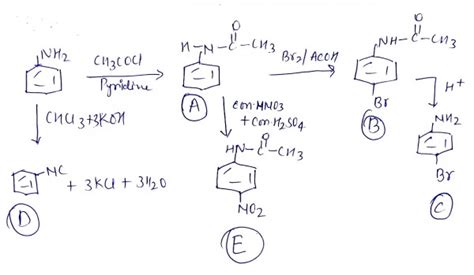 NH₂
CH₃COCl
Pyridine
H-N-C-CH₃
O
A
Br₂/AcOH
NH-C-CH₃
O
Br
B
H⁺
NH₂
Br
C
CHCl₃+3KOH
NC
+ 3KCl + 3H₂O
D
con·HNO₃
+ Con·H₂SO₄
HN-C-CH₃
O
NO₂
E